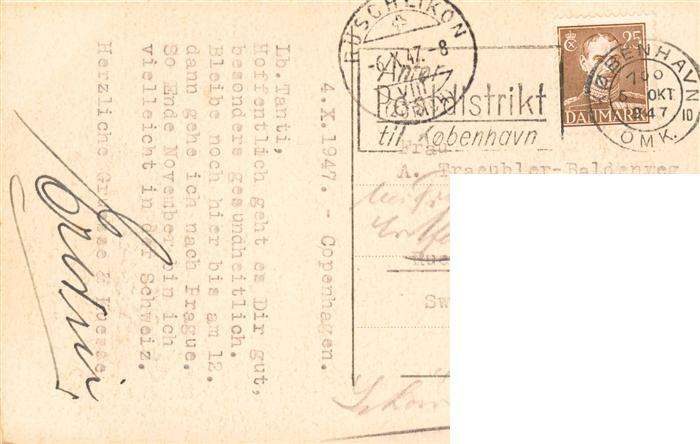 4.X.1947. - Copenhagen.
Lb. Tanti,
Hoffentlich geht es Dir gut,
besonders gesundheitlich.
Bleibe noch hier bis am 12.
dann gehe ich nach Prague.
So Ende November bin ich
vielleicht in der Schweiz.
Herzliche Gruesse & Kuesse
RÜSCHLIKON
-6.X.47.-8
Anfør
Postdistrikt
til København
25
DANMARK
KØBENHAVN
OMK.
OKT
1947
Frau
A. Fraeubler-Baldenweg
Rue
Sw